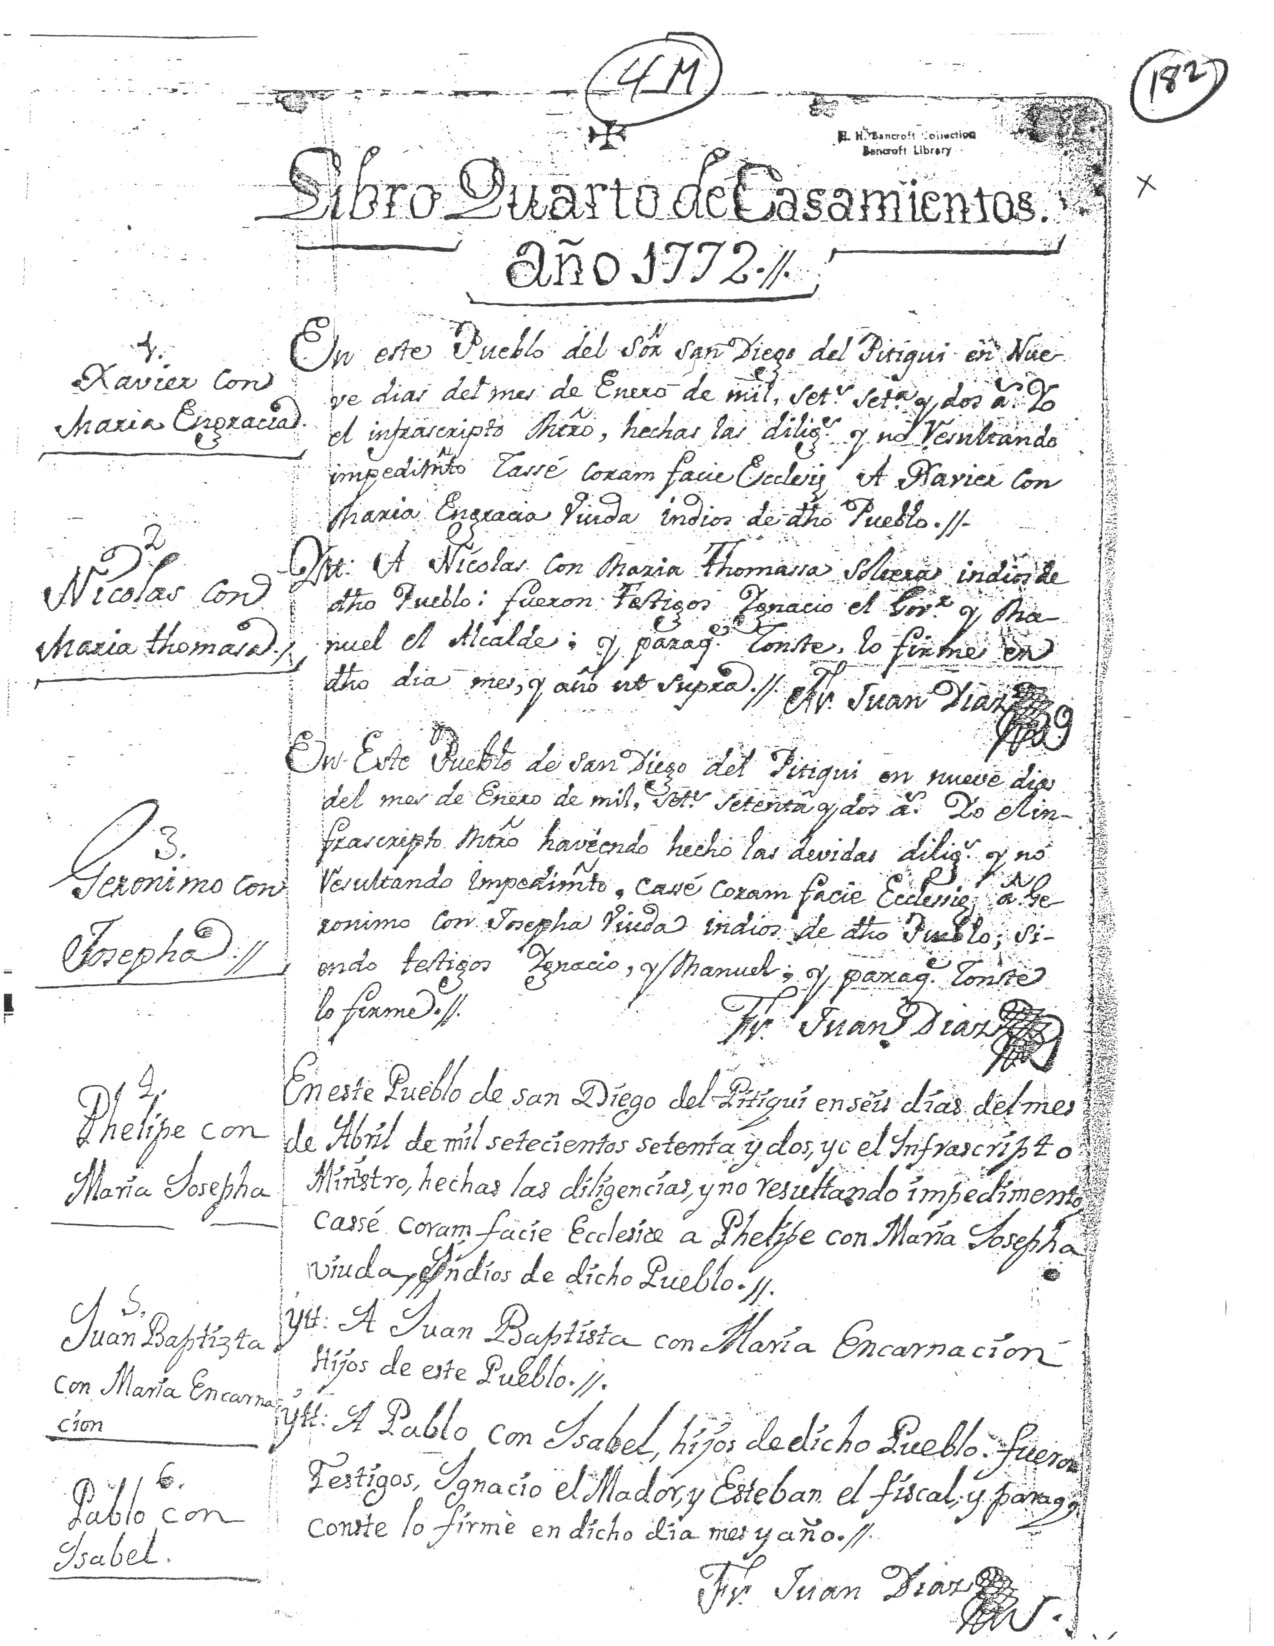 4M
182
H. H. Bancroft Collection
Bancroft Library
Libro Quarto de Casamientos.
año 1772.//.
1.
Xavier con
Maria Engracia.
En este Pueblo del Sõr San Diego del Pitiqui en Nue-
ve dias del mes de Enero de mil, set.s set.a y dos a.s Yo
el infrascripto Mtrõ, hechas las dilig.s y no Resultando
impedimt̃o Cassé coram facie Ecclesię A Xavier con
Maria Engracia Viuda indios de dho Pueblo.//-
2
Nicolas con
Maria thomasa./
Ytt: A Nicolas con Maria Thomassa Soltera indios de
dho Pueblo: fueron Testigos Ygnacio el Gov.r y Ma-
nuel el Alcalde; y paraq.e Conste, lo firmè en
dho dia mes, y año ut supra.//. Fr. Juan Diaz
3.
Geronimo con
Josepha.//
En Este Pueblo de San Diego del Pitiqui en nueve dias
del mes de Enero de mil, set.s setenta y dos a.s Yo el in-
frascripto Mtrõ haviendo hecho las devidas dilig.s y no
Resultando impedimt̃o, cassé coram facie Ecclessię, à Ge-
ronimo con Josepha Viuda indios de dho Pueblo; si-
endo testigos Ygnacio, y Manuel; y paraq.e Conste
lo firmè.//.
Fr. Juan Diaz
4.
Phelipe con
María Josepha
En este Pueblo de san Diego del Pitiqui en séis días del mes
de Abril de mil setecientos setenta y dos, yo el Infrascripto
Ministro, hechas las diligencias, y no resultando impedimento,
cassé coram facie Ecclesiæ a Phelipe con María Josepha
viuda, Indios de dicho Pueblo.//.
5.
Juan Baptizta
con María Encarna-
cion
ytt: A Juan Baptista con María Encarnacion
Hijos de este Pueblo.//.
6.
Pablo con
Ysabel.
ytt: A Pablo con Ysabel, hijos de dicho Pueblo. fueron
Testigos, Ygnacio el Mador, y Esteban el fiscal, y paraq.e
conste lo firmè en dicho dia mes y año.//.
Fr. Juan Diaz